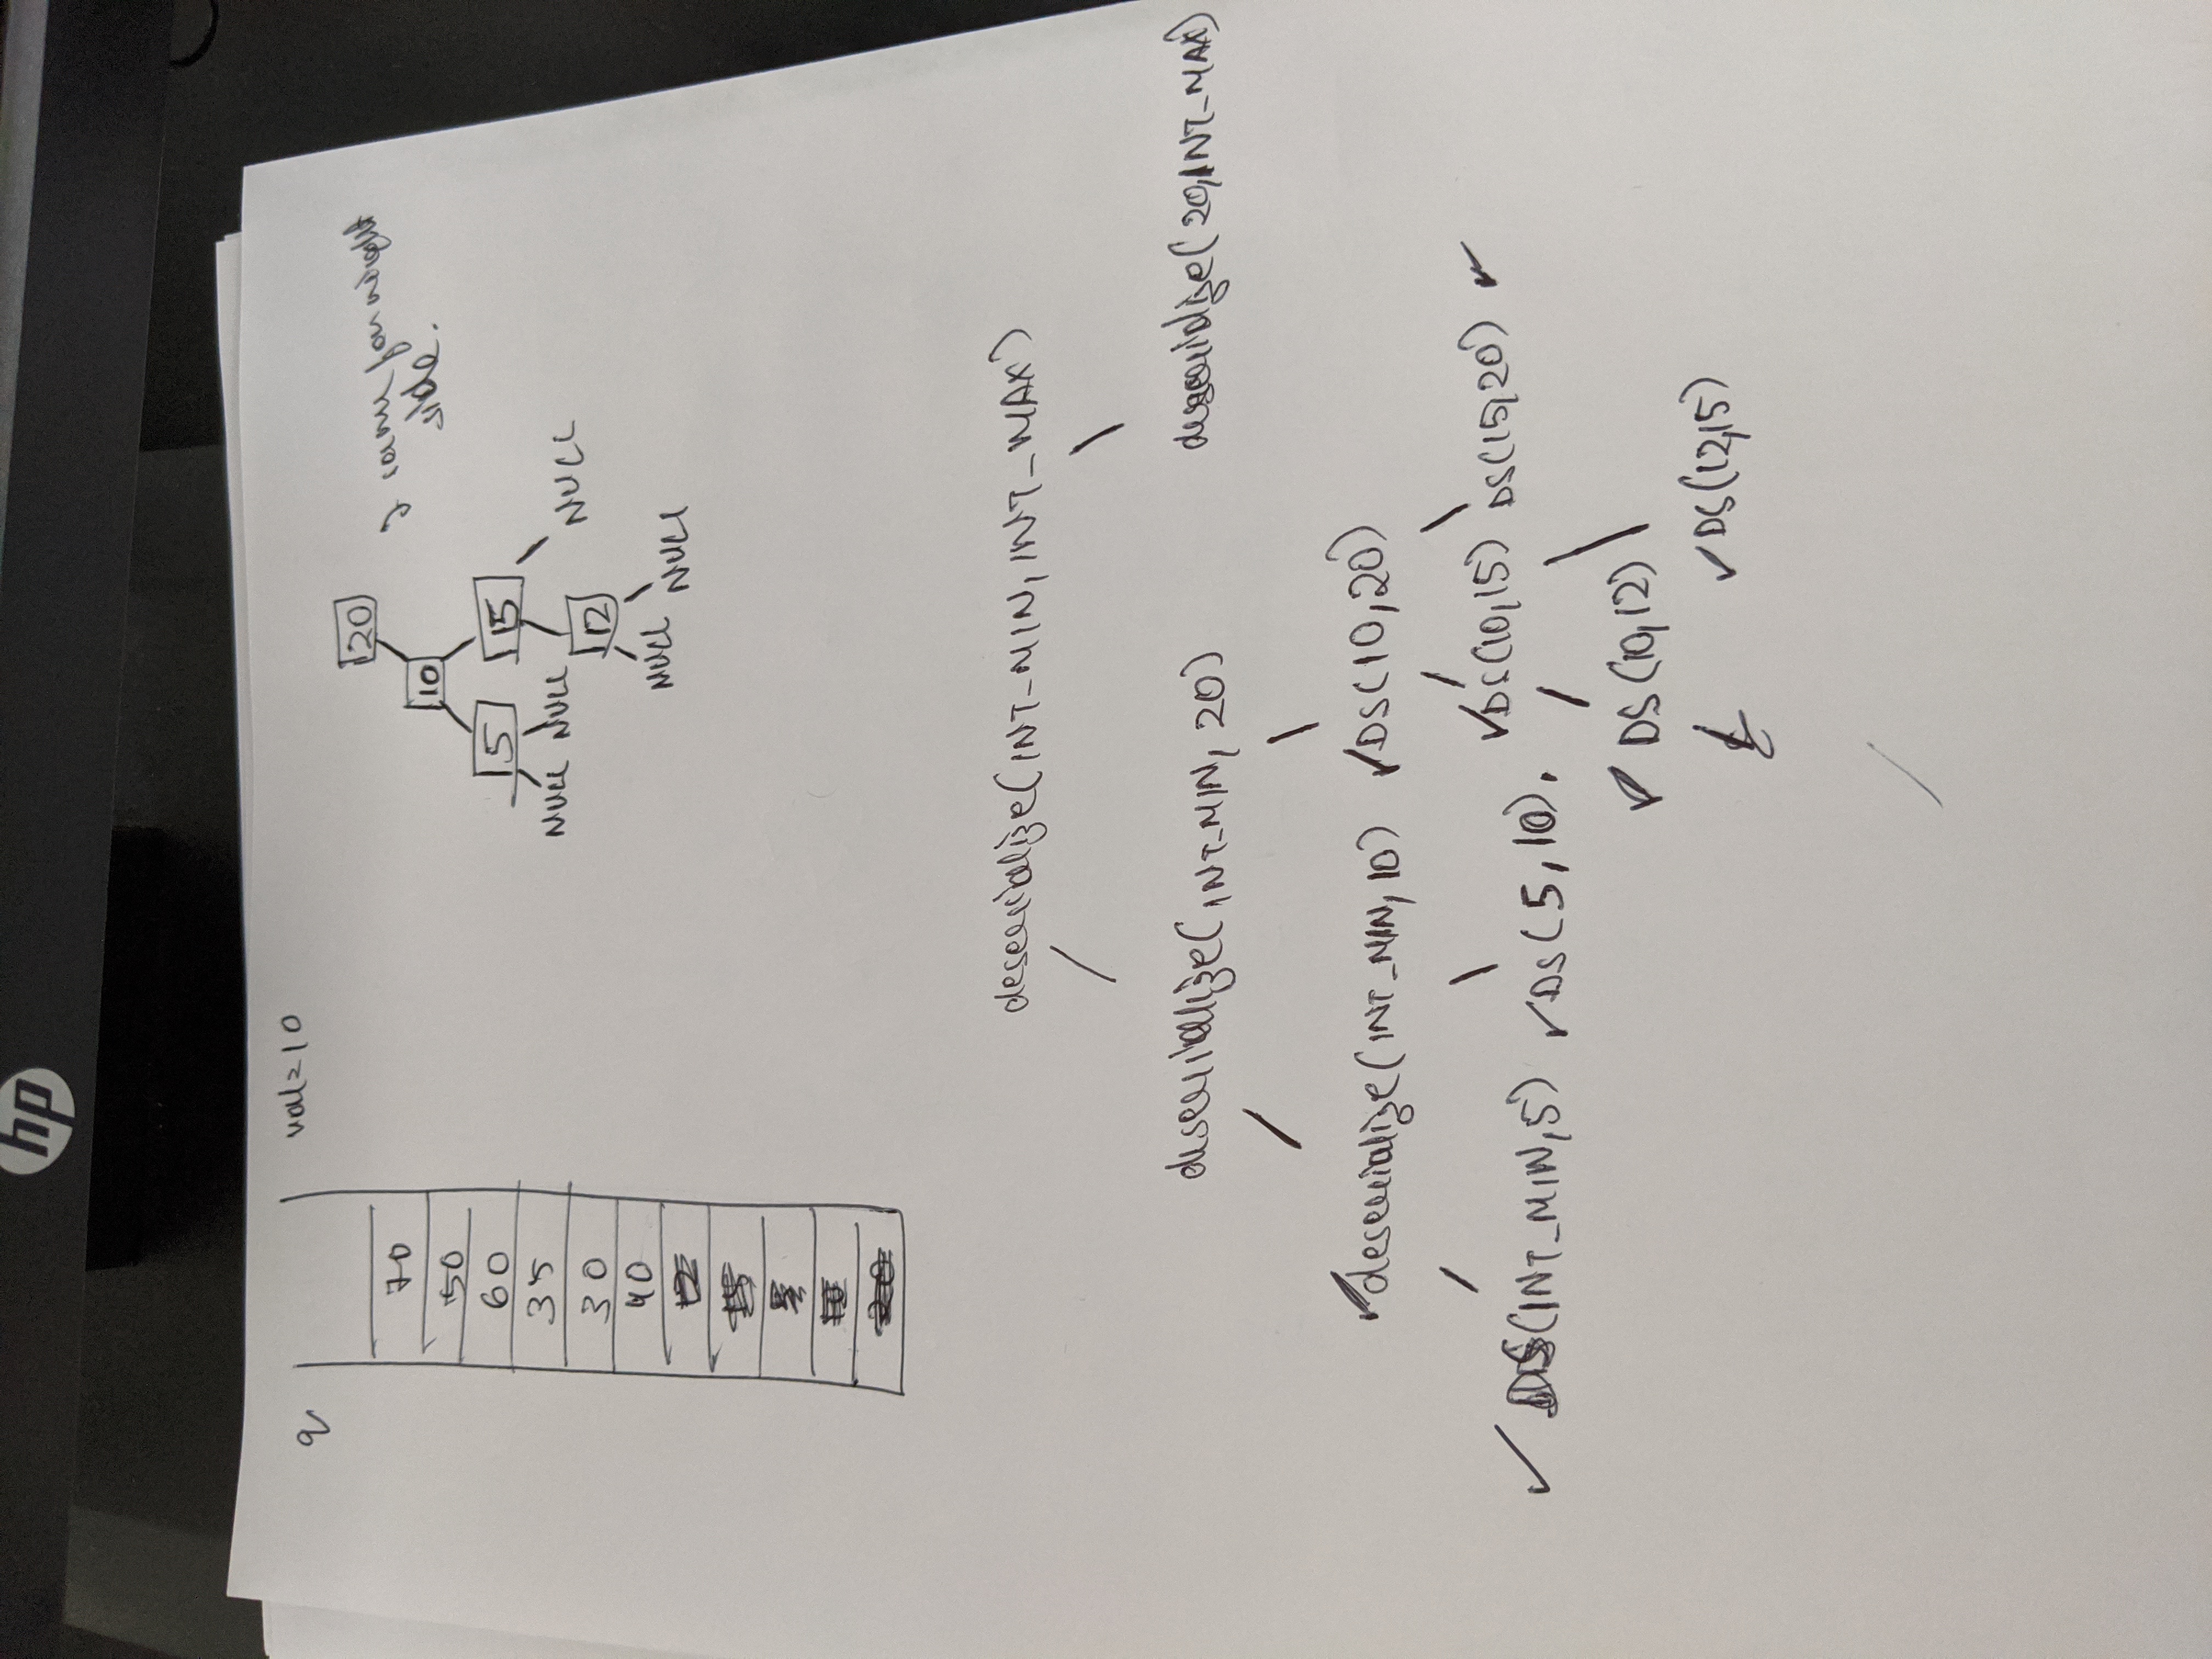 hp
q
val=10
70
50
60
35
30
40
12
15
5
10
20
20
10
5
15
NULL NULL
NULL
12
NULL NULL
same for right
side.
deserialize(INT_MIN, INT_MAX)
deserialize(INT_MIN, 20)
deserialize(20,INT_MAX)
deserialize(INT_MIN, 10)
DS(10,20)
DS(INT_MIN,5)
DS(5,10).
DS(10,15)
DS(15,20)
DS(10,12)
DS(12,15)